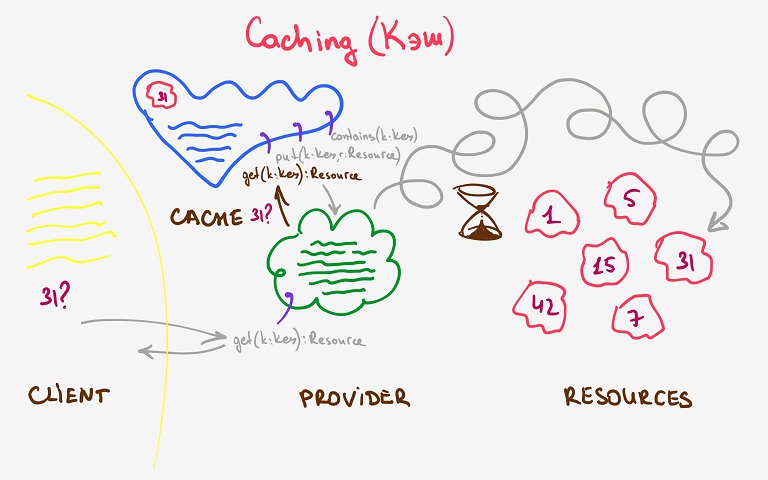 Caching (Кэш)
31
contains(k:Key)
put(k:Key,r:Resource)
get(k:Key):Resource
CACHE 31?
1
5
15
31
42
7
31?
get(k:Key):Resource
CLIENT
PROVIDER
RESOURCES